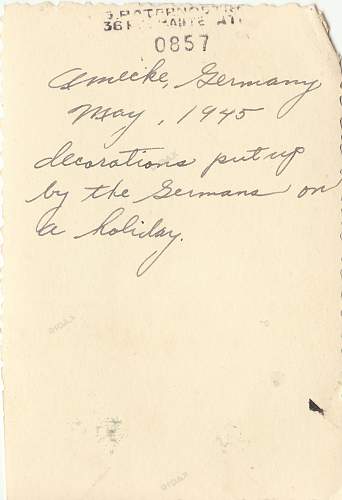 0857
Amecke, Germany
May, 1945
decorations put up
by the Germans on
a holiday.